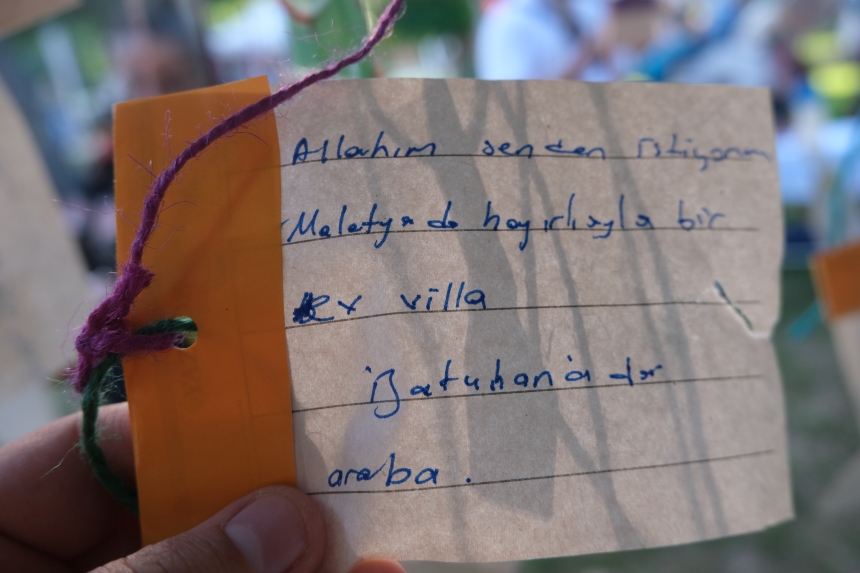 Allahım senden istiyorum
Malatyada hayırlısıyla bir
Ev villa
Batuhana da bir
araba.